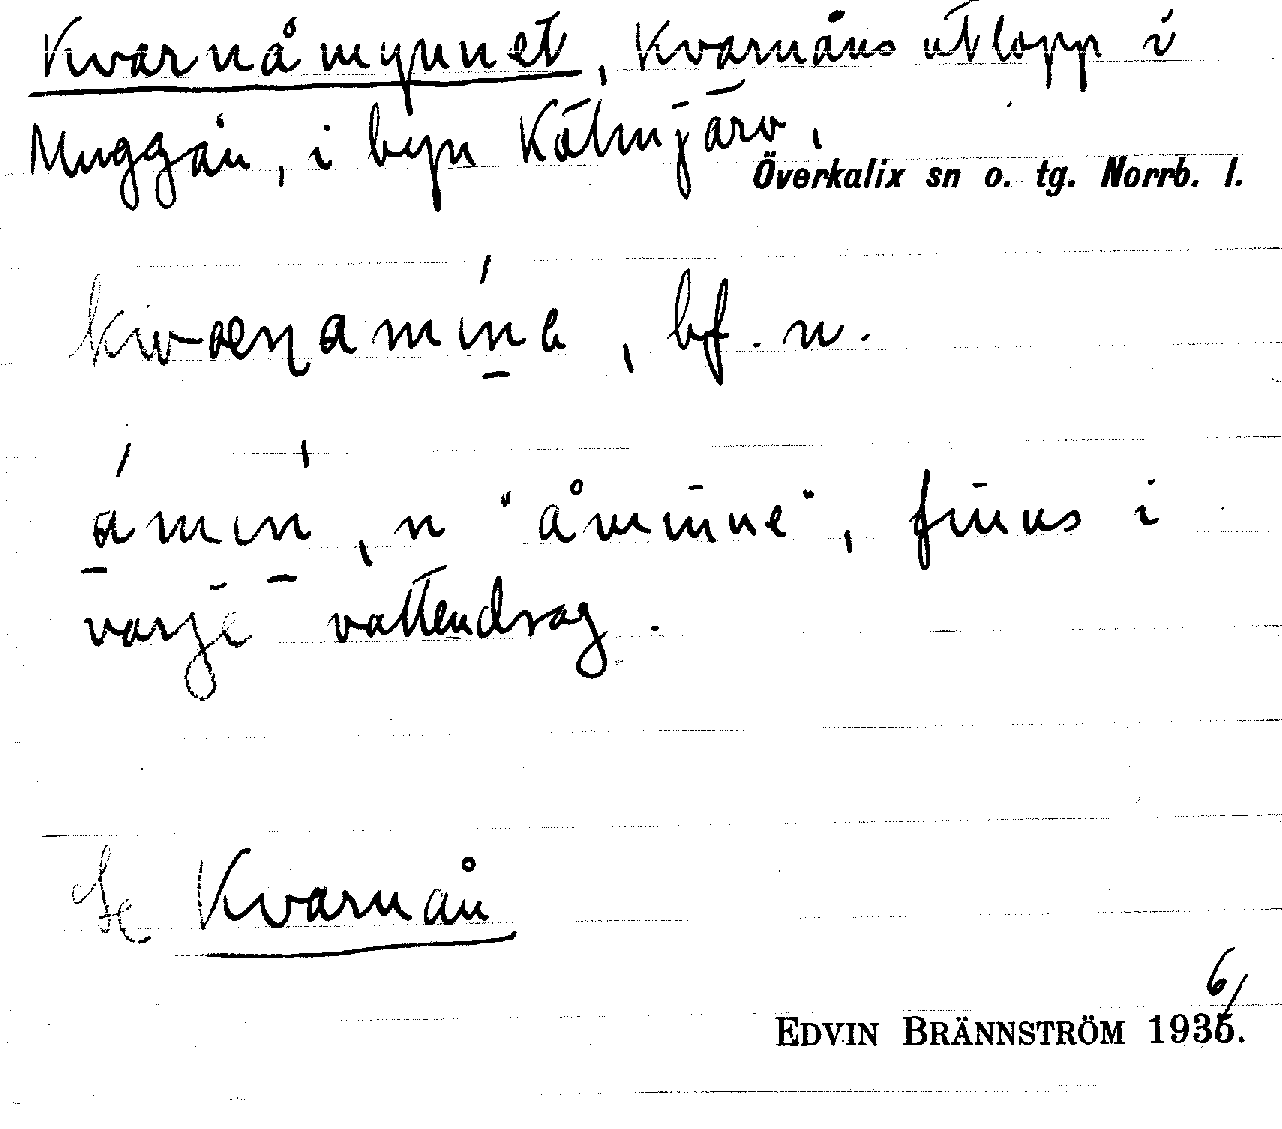 Kvarnåmynnet, Kvarnåns utlopp i
Muggån, i byn Kölmjärv,
Överkalix sn o. tg. Norrb. l.
bf. n.
n "åminne", finns i
varje vattendrag.
Se Kvarnån
6/
EDVIN BRÄNNSTRÖM 1935.